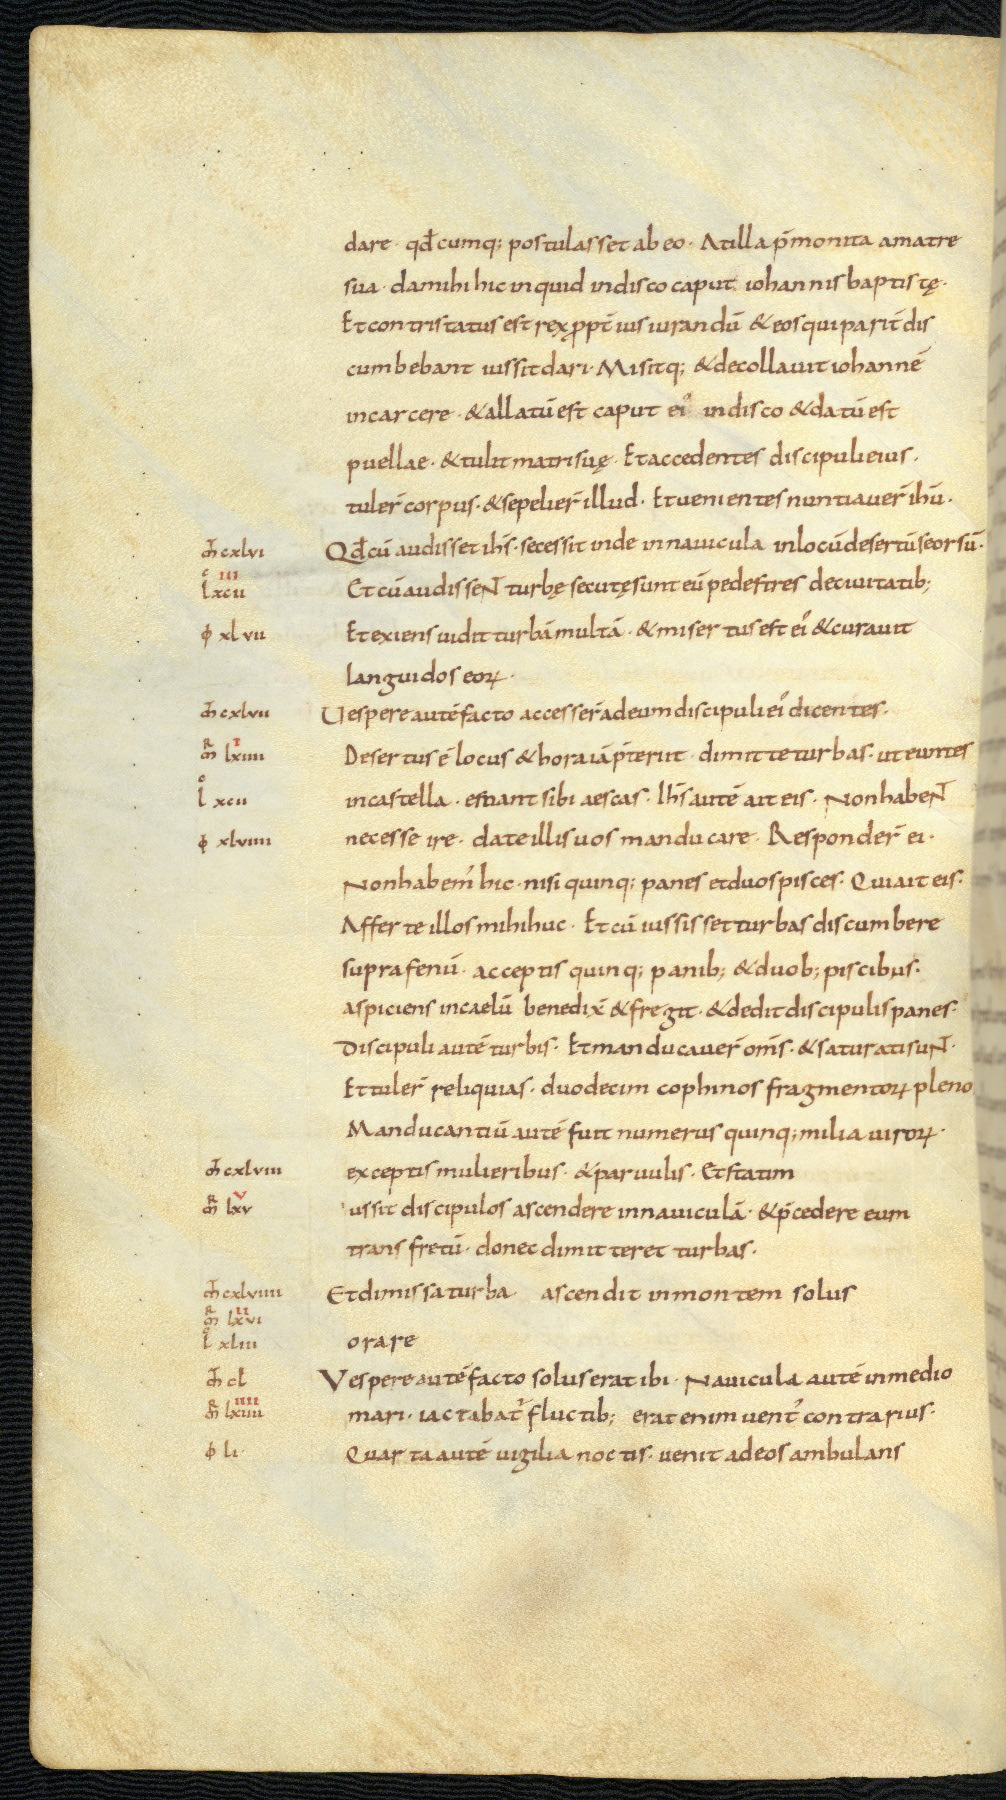 dare · qđcumq; postulasset ab eo · At illa p̄monita amatre
sua · damihi hic inquid indisco caput iohannis baptistę ·
Et contristatus est rex ꝓpt̄ iusiurandū & eos qui parit̄ dis
cumbebant iussit dari · Misitq; & decollauit iohannē
incarcere · & allatū est caput ei᾿ indisco & datū est
puellae · & tulit matri suę · Et accedentes discipuli eius ·
tuler̄ corpus · & sepelier̄ illud · Et uenientes nuntiauer̄ ihū ·
m̄ cxlvi Qđ cū audisset ihs̄ · secessit inde innauicula inlocū desertū seorsū ·
l xcii iii Et cū audissent turbę secutę sunt eū pedestres deciuitatib;
φ xlvii Et exiens uidit turbā multā · & misertus est ei᾿ & curauit
languidos eoꝝ ·
m̄ cxlvii Uespere autē facto accesser̄ adeum discipuli ei᾿ dicentes ·
m̄ʀ lxiiii Desertus ē locus & hora iā p̄teriit · dimitte turbas · ut euntes
l xcii incastella · emant sibi aescas · Ihs̄ autē ait eis · Non habent
φ xlviiii necesse ire · date illis uos manducare · Responder̄ ei ·
Non habem᾿ hic · nisi quinq; panes et duos pisces · Qui ait eis ·
Afferte illos mihi huc · Et cū iussisset turbas discumbere
supra fenū · acceptis quinq; panib; & duob; piscibus ·
aspiciens incaelū benedix̄ & fregit · & dedit discipulis panes ·
Discipuli autē turbis · Et manducauer̄ oms̄ · & saturati sunt ·
Et tuler̄ reliquias · duodecim cophinos fragmentoꝝ pleno
Manducantiū autē fuit numerus quinq; milia uiroꝝ ·
m̄ cxlviii exceptis mulieribus · & paruulis · Et statim
m̄ʀ lxv v iussit discipulos ascendere innauiculā · & p̄cedere eum
trans fretū · donec dimitteret turbas ·
m̄ cxlviiii Et dimissa turba ascendit inmontem solus
m̄ʀ lxvi ii
l xliii orare
m̄ cl Vespere autē facto solus erat ibi · Nauicula autē inmedio
m̄ʀ lxvii iiii mari · iactabat᾿ fluctib; erat enim uent᾿ contrarius ·
φ li · Quarta autē uigilia noctis · uenit adeos ambulans